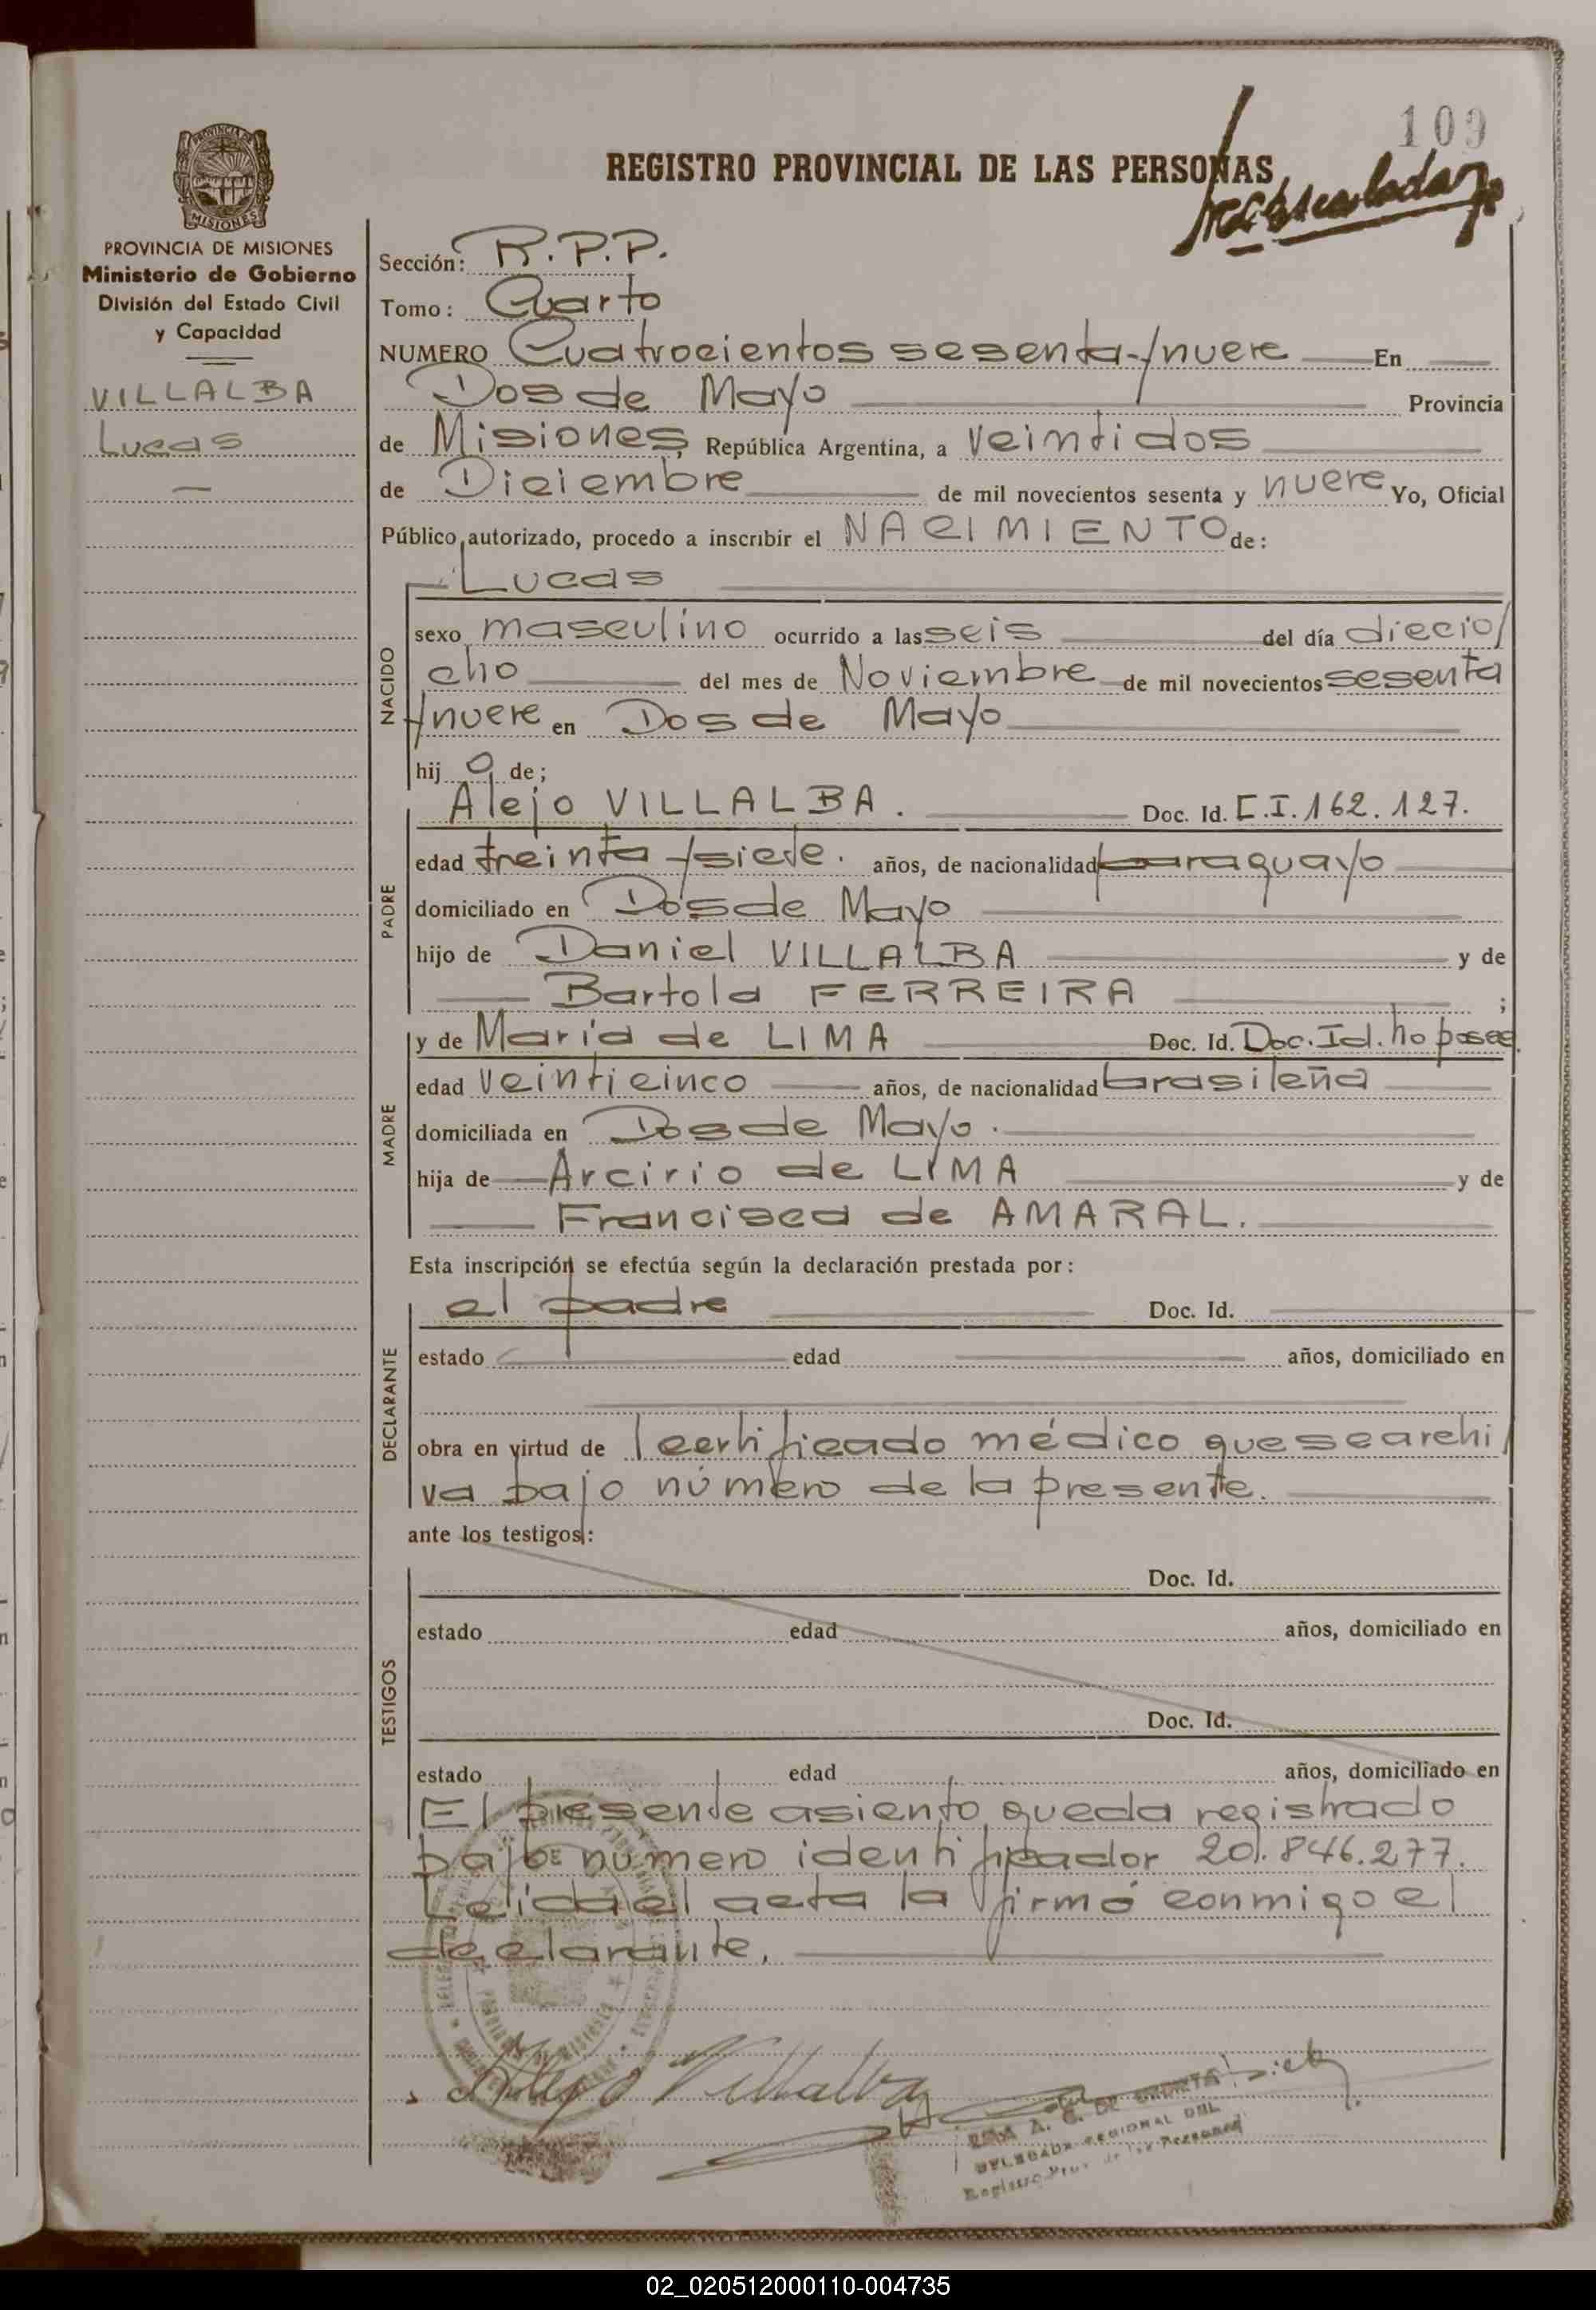 109
REGISTRO PROVINCIAL DE LAS PERSONAS
PROVINCIA DE
MISIONES
PROVINCIA DE MISIONES
Ministerio de Gobierno
División del Estado Civil
y Capacidad
VILLALBA
Lucas
Sección: R.P.P.
Tomo: Cuarto
NUMERO Cuatrocientos sesenta y nueve En
Dos de Mayo Provincia
de Misiones, República Argentina, a veintidos
de Diciembre de mil novecientos sesenta y nueve Yo, Oficial
Público autorizado, procedo a inscribir el NACIMIENTO de:
Lucas
NACIDO
sexo masculino ocurrido a las seis del día diecio/
cho del mes de Noviembre de mil novecientos sesenta
y nueve en Dos de Mayo
hij o de;
PADRE
Alejo VILLALBA. Doc. Id. C.I. 162.127.
edad treinta y siete. años, de nacionalidad paraguayo
domiciliado en Dos de Mayo
hijo de Daniel VILLALBA y de
Bartola FERREIRA ;
MADRE
y de María de LIMA Doc. Id. Doc. Id. no posee.
edad veinticinco años, de nacionalidad brasileña
domiciliada en Dos de Mayo.
hija de Arcirio de LIMA y de
Francisca de AMARAL.
Esta inscripción se efectúa según la declaración prestada por:
DECLARANTE
el padre Doc. Id.
estado edad años, domiciliado en
obra en virtud de certificado médico que se archi/
va bajo número de la presente.
ante los testigos:
TESTIGOS
Doc. Id.
estado edad años, domiciliado en
Doc. Id.
estado edad años, domiciliado en
El presente asiento queda registrado
bajo número identificador 20.846.277.
Leida el acta la firmó conmigo el
declarante.
Alejo Villalba
DELEGADA REGIONAL DEL
Registro Prov. de las Personas
02_020512000110-004735